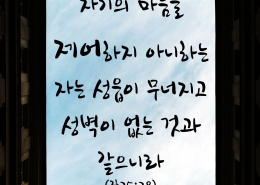 자기의 마음을
제어하지 아니하는
자는 성읍이 무너지고
성벽이 없는 것과
같으니라
(잠25:28)